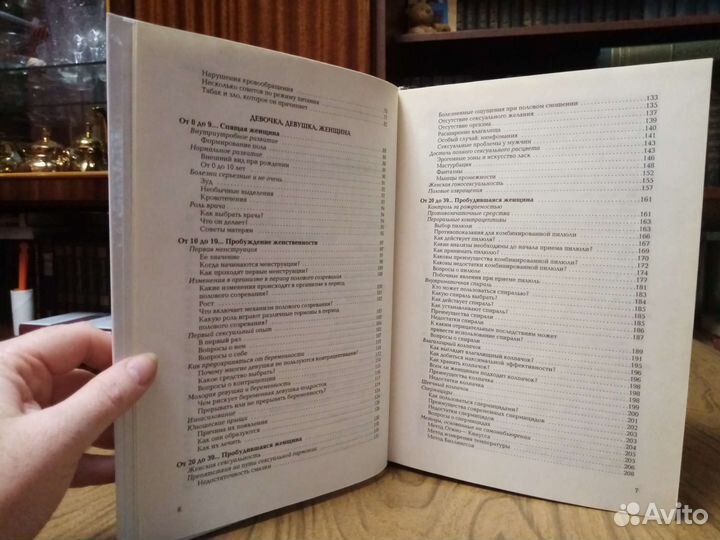 Нарушения кровообращения
Несколько советов по режиму питания
Табак и зло, которое он причинает
ДЕВОЧКА, ДЕВУШКА, ЖЕНЩИНА
От 0 до 9... Спящая женщина
Внутриутробное развитие
Формирование пола
Нормальное развитие
Внешний вид при рождении
От 0 до 10 лет
Болезни серьезные и не очень
Зуд
Необычные выделения
Кровотечения
Роль врача
Как выбрать врача?
Что он делает?
Советы матерям
От 10 до 19... Пробуждение женственности
Первая менструация
Ее значение
Когда начинаются менструации?
Как проходят первые менструации?
Изменения в организме в период полового созревания
Какие изменения происходят в организме в период
полового созревания?
Рост
Что включает механизм полового созревания?
Какую роль играют различные гормоны в период
полового созревания?
Первый сексуальный опыт
В первый раз
Вопросы о нем
Вопросы о себе
Как предохраняться от беременности
Почему многие девушки не пользуются контрацептивами?
Какое средство выбрать?
Вопросы о контрацепции
Молодая девушка и беременность
Чем рискует беременная девушка подросток
Прерывать или не прерывать беременность?
Изнасилование
Юношеские прыщи
Причина их появления
Как они образуются
Как их лечить
От 20 до 39... Пробудившаяся женщина
Женская сексуальность
Препятствия на пути сексуальной гармонии
Недостаточность смазки
6
Болезненные ощущения при половом сношении 133
Отсутствие сексуального желания 135
Отсутствие оргазма 137
Расширение влагалища 139
Особый случай: нимфомания 140
Сексуальные проблемы у мужчин 141
Достичь полного сексуального расцвета 141
Эрогенные зоны и искусство ласк 143
Мастурбация 146
Фантазмы 148
Мышцы промежности 152
Женская гомосексуальность 155
Половые извращения 157
От 20 до 39... Пробудившаяся женщина 161
Контроль за рождаемостью
Противозачаточные средства 161
Пероральные контрацептивы 163
Выбор пилюли
Противопоказания для комбинированной пилюли
Как действует пилюля?
Какие анализы необходимы до начала приема пилюли?
Как принимать пилюлю?
Каковы преимущества комбинированной пилюли?
Каковы недостатки комбинированной пилюли?
Вопросы о пилюле
Побочные явления при приеме пилюль
Внутриматочная спираль
Кто может пользоваться спиралью?
Какую спираль выбрать?
Как действует спираль?
Как устанавливают спираль?
Преимущества спирали
Недостатки спирали
К каким отрицательным последствиям может
привести использование спирали?
Вопросы о спирали
Влагалищный колпачок
Как выглядит влагалищный колпачок?
Как добиться максимальной эффективности?
Как хранить колпачок?
Всем ли женщинам подходит колпачок?
Преимущества колпачка
Недостатки колпачка
Шеечный колпачок
Спермициды
Как пользоваться спермицидами?
Преимущества современных спермицидов
Недостатки спермицидов
Вопросы о спермицидах
Методы, основанные на самонаблюдении
Метод Огино – Кнауса
Метод измерения температуры
Метод Биллингсов 208
7
Avito